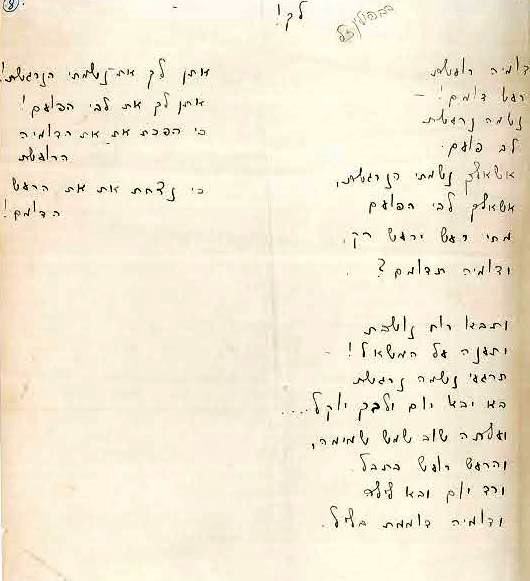 לך!
דומיה רועשת
רעש דומם! –
נשמה נרגשת
לב פועם.
אשאלך נשמתי הנרגשת,
אשאלך לבי הפועם
מתי רעש ירעש רק,
ודומיה תדומם?
ותבא רוח נושבת
ותענה על המשאל! –
תרגעי נשמה נרגשת
בא יבא יום ולבך יוקל....
ועלתה שוב שמש שמימה,
והרעש רועש בתבל.
ורד יום ובא לילה
ודומיה דוממת בליל.
אתן לך את נשמתי הנרגשת!
אתן לך את לבי הפועם!
כי הפכת את את הדומיה
הרועשת
כי נצחת את את הרעש
הדומם!